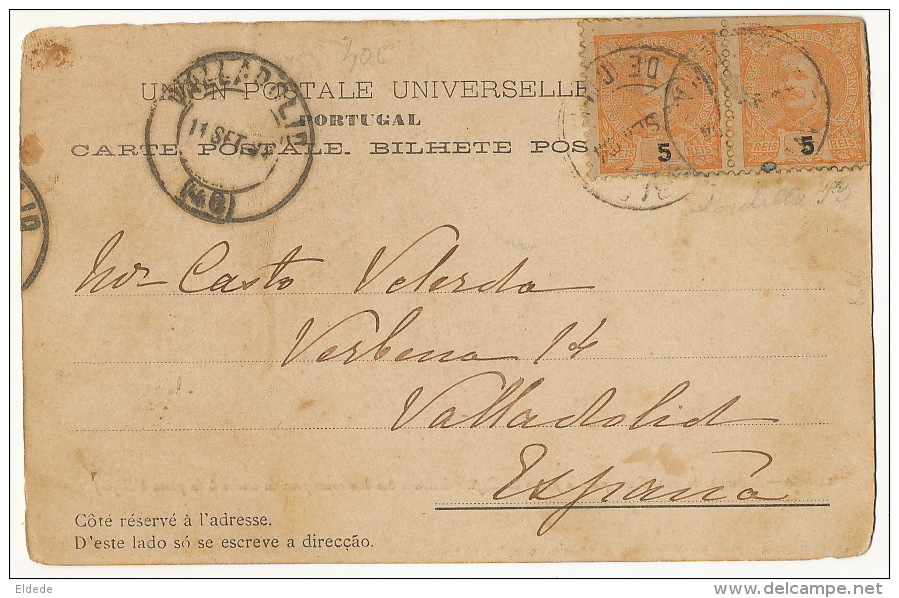 UNION POSTALE UNIVERSELLE
PORTUGAL
CARTE POSTALE. BILHETE POS
VALLADOLID
11 SET
(40)
5 REIS
5 REIS
Casto Velerda
Verbena 14
Valladolid
España
Côté réservé à l'adresse.
D'este lado só se escreve a direcção.
Eldede
www.delcampe.net